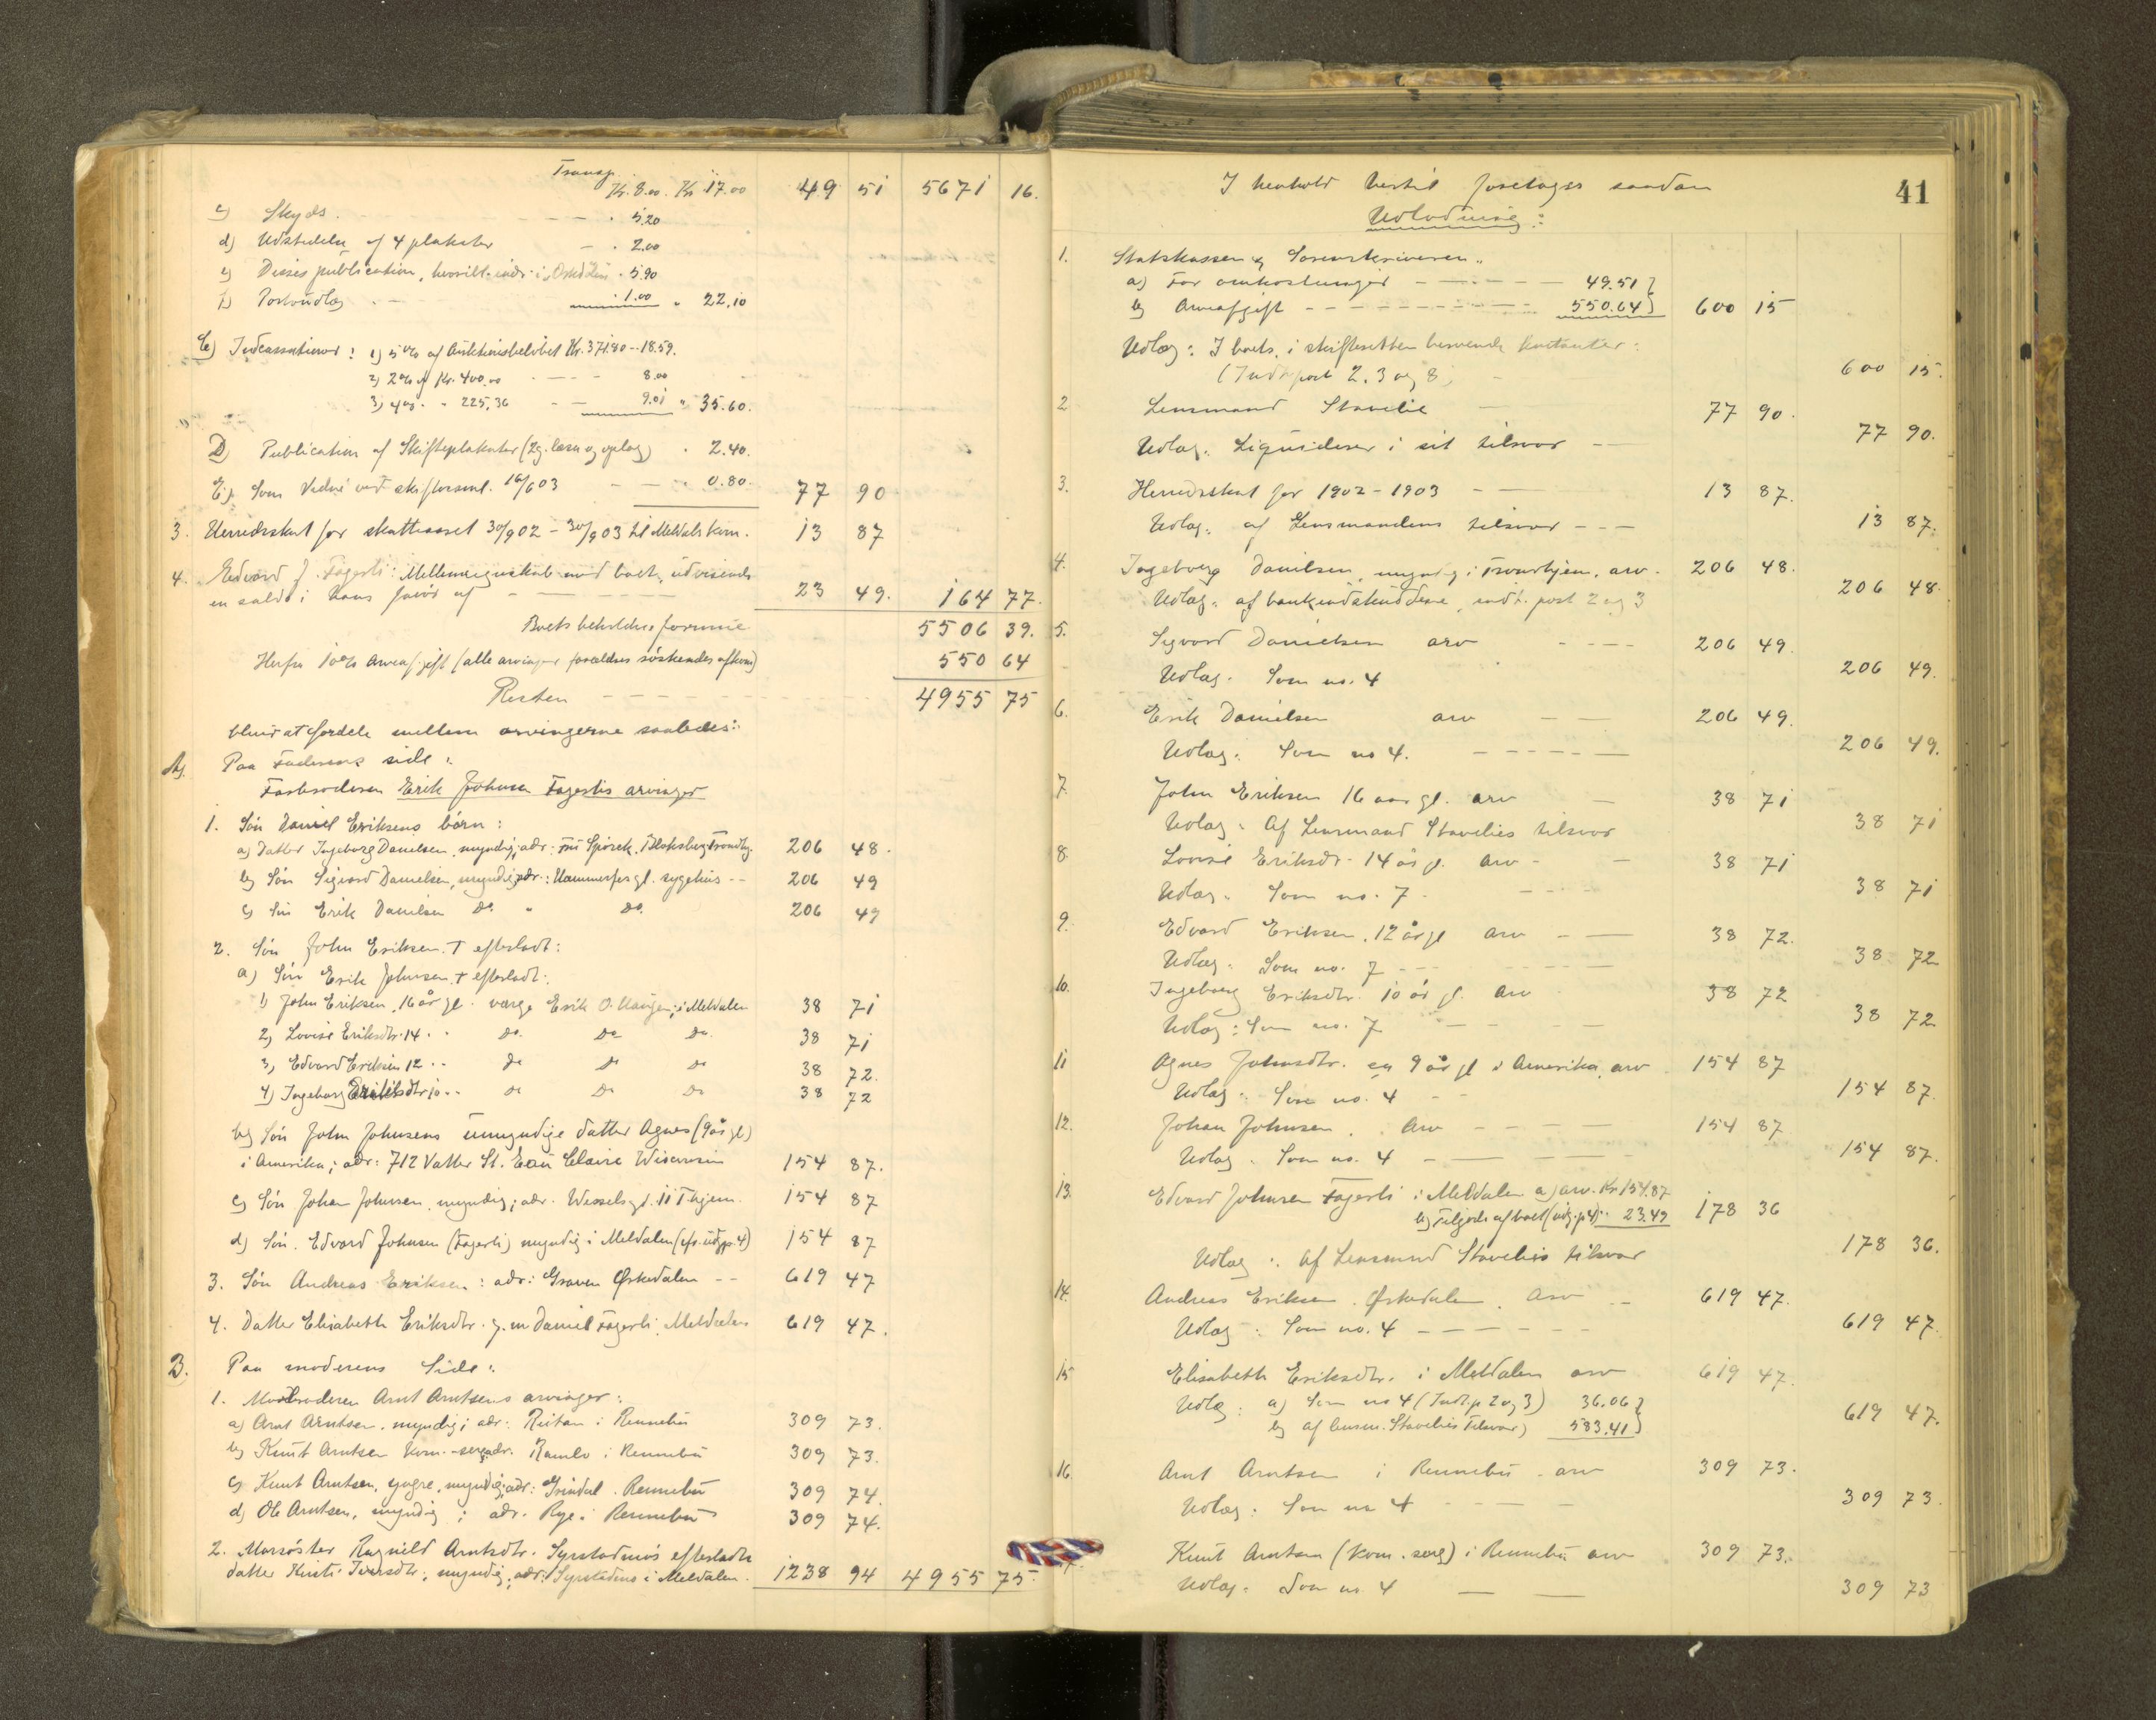 Transp. Kr. 8.00 Kr. 17.00 49 51 5671 16.
c) Skyds. - - - 5.20
d) Udstedelse af 4 plakater - 2.00
e) Disses publication, 5.90
f) Portoudlæg - - 1.00 " 22.10
C) Indcassationer: 1) 5% af Auktionsbeløbet Kr. 371.80 - 18.59.
2) 2% af Kr. 400.00 - - - 8.00
3) 4% - " 225.36 - - 9.01 " 35.60.
D) Publication af Skifteplakater (2 g. læsn og opslag) " 2.40.
E) Som Vidne ved skiftesaml. 16/6 03 - - " 0.80. 77 90
3. Herredsskat for skatteaaret 30/9 02 - 30/9 03 til Meldals kom. 13 87
4. Edvard J. Fagerli: Mellemregnskab med boet, udvisende
en saldo i hans favør af - - - 23 49. 164 77.
Boets beholdne formue 5506 39.
Herfra 10% Arveafgift (alle arvinger forældres søskendes afkom) 550 64
Resten - - - 4955 75
bliver at fordele mellem arvingerne saaledes:
A) Paa Faderens side:
Farbroderen Erik Johnsen Fagerlis arvinger
1. Søn Daniel Eriksens børn:
a) Datter Ingeborg Danielsen, myndig, adr: Trondhj. 206 48.
b) Søn Sigvard Danielsen, myndig, adr.: Hammerfest gl. sygehus - - 206 49
c) Søn Erik Danielsen do. " do. 206 49
2. Søn John Eriksen † efterladt:
a) Søn Erik Johnsen † efterladt:
1) John Eriksen, 16 år gl. værge Erik O. Haugen, i Meldalen 38 71
2) Lovise Eriksdtr. 14 - " do. do do. 38 71
3) Edvard Eriksen 12 - " do do do 38 72.
4) Ingeborg Eriksdtr 10 - " do do do 38 72
b) Søn John Johnsens umyndige datter Agnes (9 år gl)
i Amerika; adr: 712 Vatter St. Eau Claire Wisconsin 154 87.
c) Søn Johan Johnsen, myndig; adr. Wesselsgd. 11 Thjem. 154 87
d) Søn Edvard Johnsen (Fagerli) myndig i Meldalen (cfr. udg. p. 4) 154 87
3. Søn Andreas Eriksen: adr: Graven Ørkedalen - - 619 47
4. Datter Elisabeth Eriksdtr. g. m Daniel Fagerli, Meldalen 619 47.
B. Paa moderens Side:
1. Morbroderen Arnt Arntsens arvinger:
a) Arnt Arntsen, myndig; adr: i Rennebu 309 73.
b) Knut Arntsen kom. serg. adr. Ramlo i Rennebu 309 73.
c) Knut Arntsen, yngre, myndig, adr: Grindal, Rennebu 309 74.
d) Ole Arntsen, myndig; adr. Rye i Rennebu 309 74.
2. Morsøster Ragnild Arntsdtr. Syrstadmos efterladte
datter Kirsti Iversdtr; myndig, adr: i Meldalen. 1238 94 4955 75.
41
I henhold hertil foretoges saadan
Udlodning:
1. Statskassen v. Sorenskriveren.
a) For omkostninger - - - 49.51
b) Arveafgift - - - 550.64 600 15
Udlæg: I boets, i skifteretten beroende kontanter:
(Indt. post 2, 3 og 8) - 600 15.
2 Lensmand Stavelie - 77 90.
Udlæg. Liquiderer i sit tilsvar - - 77 90.
3. Herredsskat for 1902 - 1903 - - 13 87.
Udlæg: af Lensmandens tilsvar - - - 13 87.
4. Ingeborg Danielsen, myndig i Trondhjem, arv. 206 48.
Udlæg: af bankindskuddene, indt. post 2 og 3 206 48.
5. Sigvard Danielsen arv - - - 206 49
Udlæg. Som no. 4 206 49.
6. Erik Danielsen arv - - 206 49.
Udlæg: Som no 4. - - - 206 49.
7. John Eriksen 16 aar gl. arv - 38 71
Udlæg: Af Lensmand Stavelies tilsvar 38 71
8. Lovise Eriksdr. 14 år gl. arv - - 38 71
Udlæg: Som no. 7 - - - 38 71
9. Edvard Eriksen, 12 år gl arv - - 38 72.
Udlæg: Som no. 7 - - - 38 72
10. Ingeborg Eriksdtr. 10 år gl. arv 38 72
Udlæg: Som no. 7 - - - 38 72
11 Agnes Johnsdtr. ca 9 år gl i Amerika, arv 154 87
Udlæg: Som no. 4 - - 154 87.
12. Johan Johnsen. Arv - - - 154 87
Udlæg. Som no. 4 - - - 154 87.
13. Edvard Johnsen Fagerli i Meldalen a) arv. Kr 154.87
b) Tilgode af boet (udg. p 4) - 23.49 178 36
Udlæg: af Lensmand Stavelies tilsvar 178 36.
14. Andreas Eriksen, Ørkedalen, Arv - - 619 47.
Udlæg: Som no. 4 - - - 619 47.
15 Elisabeth Eriksdtr. i Meldalen arv 619 47.
Udlæg: a) Som no 4 (Indt. p 2 og 3) 36.06
b) af Lensm. Stavelies tilsvar) 583.41 619 47.
16 Arnt Arntsen i Rennebu - arv 309 73.
Udlæg: Som no 4 - - - 309 73.
Knut Arntsen (kom. serg) i Rennebu arv 309 73.
Udlæg: Som no. 4 - - 309 73